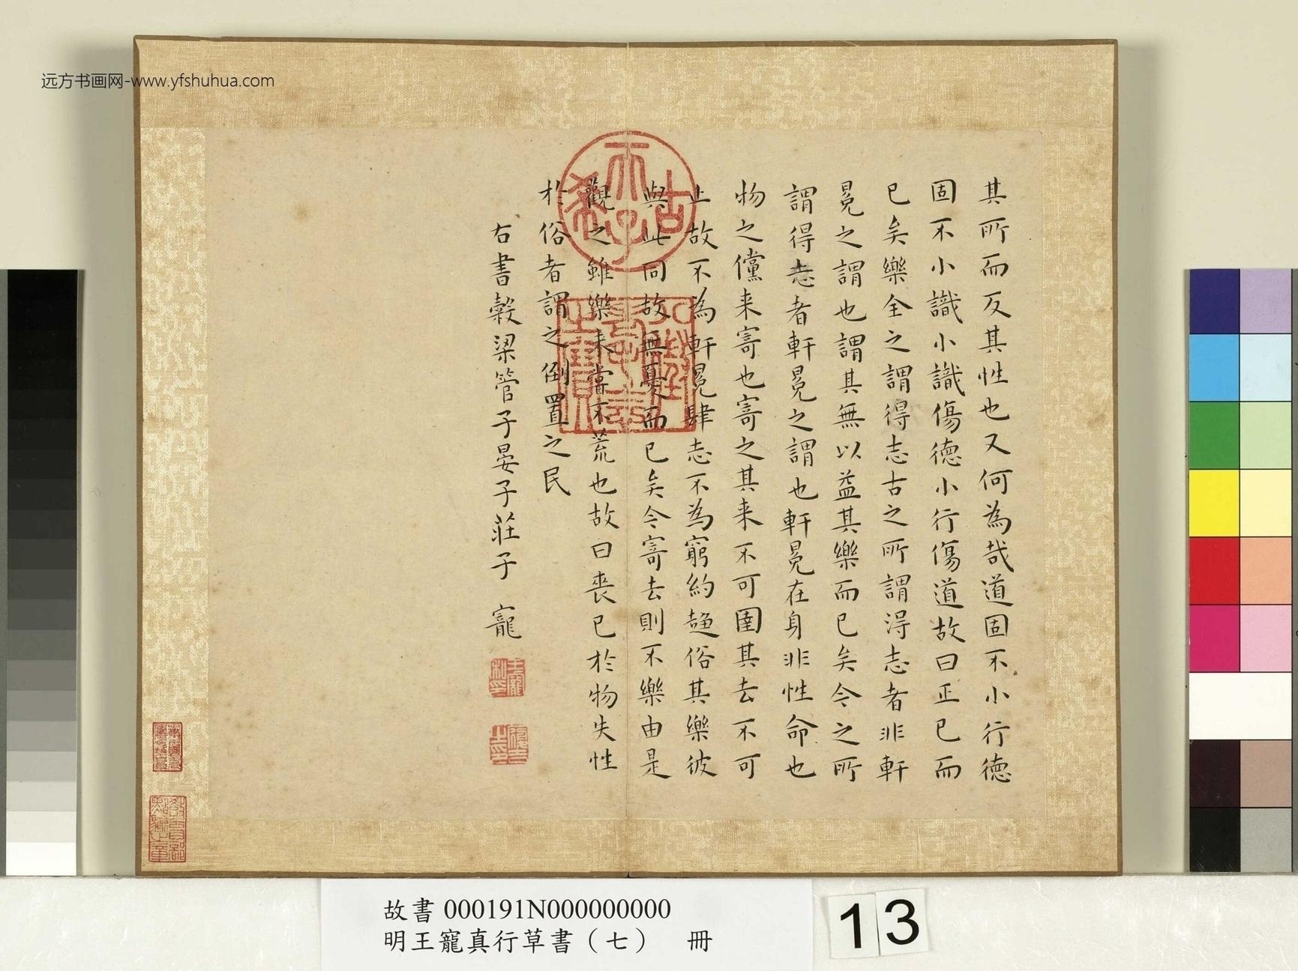 远方书画网-www.yfshuhua.com
其所而反其性也又何為哉道固不小行德
固不小識小識傷德小行傷道故曰正己而
已矣樂全之謂得志古之所謂得志者非軒
冕之謂也謂其無以益其樂而已矣今之所
謂得志者軒冕之謂也軒冕在身非性命也
物之儻来寄也寄之其来不可圉其去不可
止故不為軒冕肆志不為窮約趍俗其樂彼
與此同故無憂而已矣今寄去則不樂由是
觀之雖樂未嘗不荒也故曰喪己於物失性
於俗者謂之倒置之民
右書穀梁管子晏子莊子 寵
古稀天子
八徵耄念之寶
故書 000191N000000000
明王寵真行草書（七） 冊
13